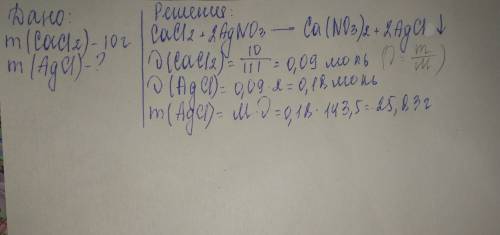 Дано:
m(CaCl2) - 10г
m(AgCl) - ?
Решение:
CaCl2 + 2AgNO3 — Ca(NO3)2 + 2AgCl ↓
ν(CaCl2) = 10/111 = 0,09 моль (ν = m/M)
ν(AgCl) = 0,09 · 2 = 0,18 моль
m(AgCl) = M · ν = 0,18 · 143,5 = 25,83г